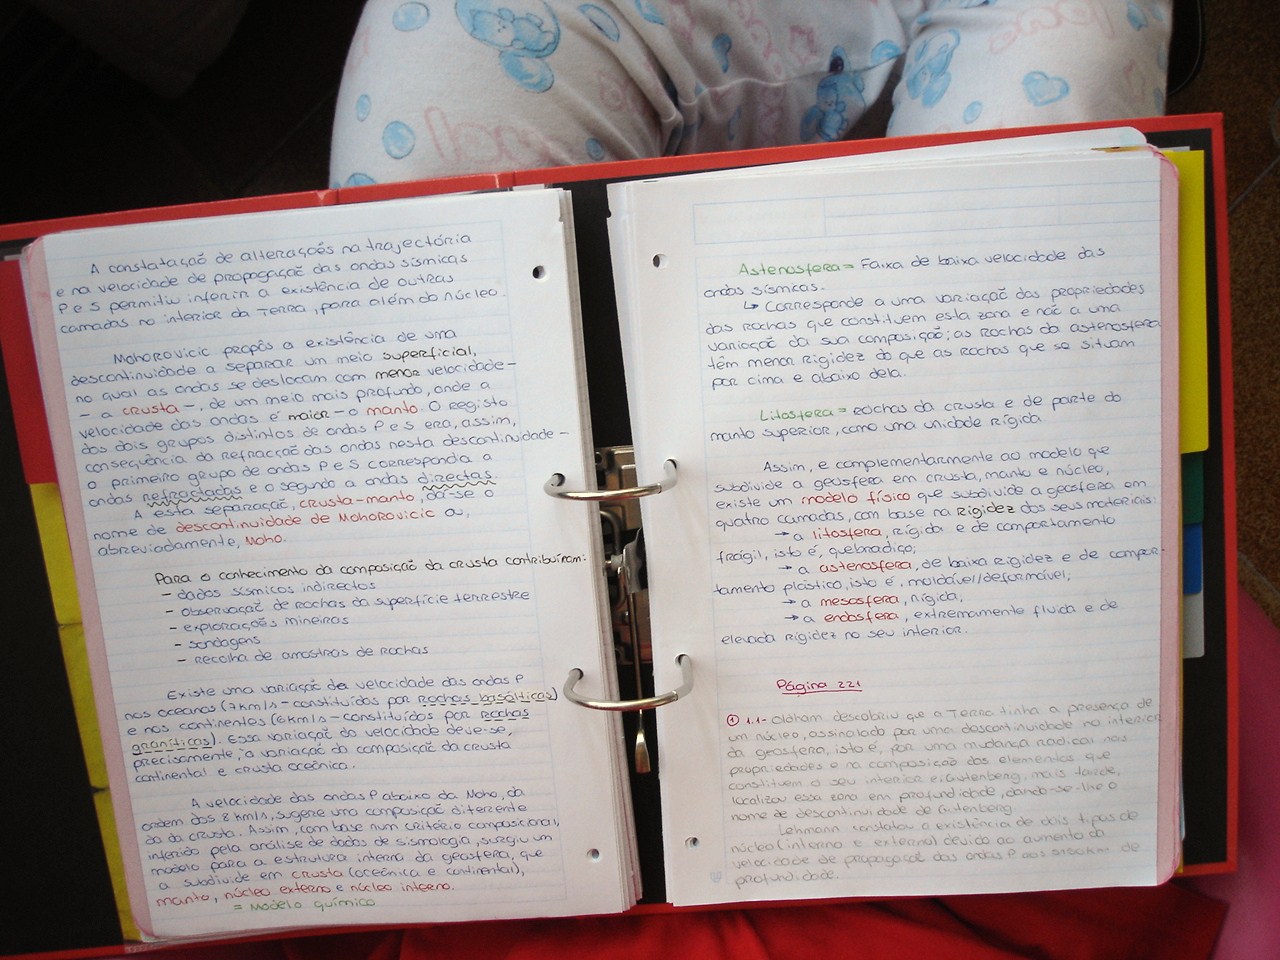 A constatação de alterações na trajectória
e na velocidade de propagação das ondas sísmicas
P e S permitiu inferir a existência de outras
camadas no interior da Terra, para além do núcleo.
Mohorovicic propôs a existência de uma
descontinuidade a separar um meio superficial,
no qual as ondas se deslocam com menor velocidade -
- a crusta -, de um meio mais profundo, onde a
velocidade das ondas é maior - o manto. O registo
dos dois grupos distintos de ondas P e S era, assim,
consequência da refracção das ondas nesta descontinuidade -
o primeiro grupo de ondas P e S correspondia a
ondas refractadas e o segundo a ondas directas.
A esta separação, crusta-manto, dá-se o
nome de descontinuidade de Mohorovicic ou,
abreviadamente, Moho.
Para o conhecimento da composição da crusta contribuíram:
- dados sísmicos indirectos
- observação de rochas da superfície terrestre
- explorações mineiras
- sondagens
- recolha de amostras de rochas
Existe uma variação da velocidade das ondas P
nos oceanos (7km/s - constituídos por rochas basálticas)
e nos continentes (6km/s - constituídos por rochas
graníticas). Essa variação da velocidade deve-se,
precisamente, à variação da composição da crusta
continental e crusta oceânica.
A velocidade das ondas P abaixo da Moho, da
ordem dos 8 km/s, sugere uma composição diferente
da da crusta. Assim, com base num critério composicional,
inferido pela análise de dados de sismologia, surgiu um
modelo para a estrutura interna da geosfera, que
a subdivide em crusta (oceânica e continental),
manto, núcleo externo e núcleo interno.
= Modelo químico
Astenosfera = Faixa de baixa velocidade das
ondas sísmicas.
↳ Corresponde a uma variação das propriedades
das rochas que constituem esta zona e não a uma
variação da sua composição; as rochas da astenosfera
têm menor rigidez do que as rochas que se situam
por cima e abaixo dela.
Litosfera = rochas da crusta e de parte do
manto superior, como uma unidade rígida.
Assim, e complementarmente ao modelo que
subdivide a geosfera em crusta, manto e núcleo,
existe um modelo físico que subdivide a geosfera em
quatro camadas, com base na rigidez dos seus materiais:
→ a litosfera, rígida e de comportamento
frágil, isto é, quebradiço;
→ a astenosfera, de baixa rigidez e de compor-
tamento plástico, isto é, moldável/deformável;
→ a mesosfera, rígida;
→ a endosfera, extremamente fluida e de
elevada rigidez no seu interior.
Página 221
① 1.1- Oldham descobriu que a Terra tinha a presença de
um núcleo, assinalado por uma descontinuidade no interior
da geosfera, isto é, por uma mudança radical nas
propriedades e na composição dos elementos que
constituem o seu interior e Gutenberg, mais tarde,
localizou essa zona em profundidade, dando-se-lhe o
nome de descontinuidade de Gutenberg.
Lehmann constatou a existência de dois tipos de
núcleo (interno e externo) devido ao aumento da
velocidade de propagação das ondas P aos 5150km de
profundidade.